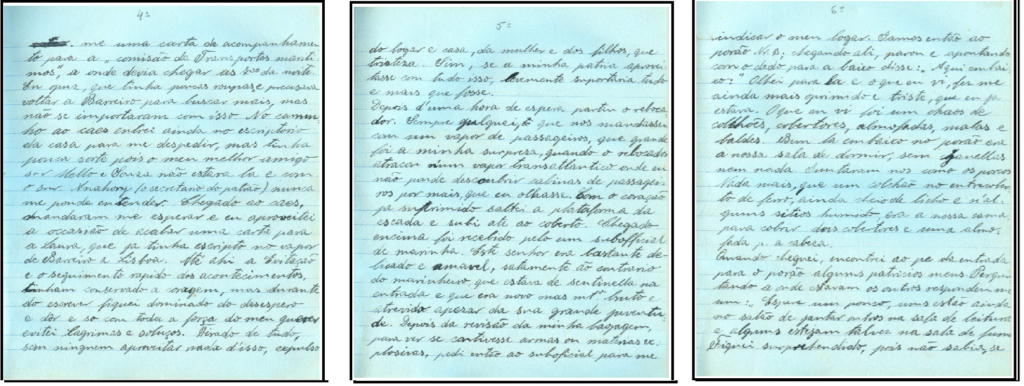 4º
me uma carta de acompanhamen
to para a "comissão de Transportes marit
mos", a onde devia chegar às da noite.
Eu quiz, que tinha poucas roupas e precisava
voltar a Barreiro para buscar mais, mas
não se importaram com isso. No camin
ho ao caes entrei ainda no escriptorio
da casa para me despedir, mas tinha
pouca sorte pois o meu melhor amigo
snr Mello e Souza não estava la e com
o snr. Anahory (o secretario do patrão) nunca
me pondo entender. Chegado ao caes,
mandaram me esperar e eu aproveitei
a occasião de acabar uma carta para
a Laura, que ja tinha escripto no vapor
de Barreiro a Lisboa. Até ahi a excitação
e o seguimento rapido dos acontecimentos,
tinham conservado a coragem, mas durante
do escrever fiquei dominado do desespero
e dor e so com toda a força do meu querer
evitei lagrimas e soluços. Tirado de tudo,
sem ninguem aproveitar nada d'isso, expulso
5º
do logar e casa, da mulher e dos filhos, que
tristeza. Sim, se a minha patria aprovei
tasse com tudo isso, levemente suportaria tudo
e mais que fosse.
Depois d'uma hora de espera partiu o reboca
dor. Sempre julguei, que nos mandassem
com um vapor de passageiros, que grande
foi a minha surpresa, quando o rebocador
atracou n'um vapor transatlantico onde eu
não pude descubrir cabinas de passagei
ros por mais, que eu olhasse. Com o coração
ja suprimido saltei a plataforma da
escada e subi até ao coberto. Chegado
encima foi recebido pelo um suboficial
de marinha. Este senhor era bastante de
licado e amavel, justamente ao contrario
do marinheiro, que estava de sentinella na
entrada e que era novo mas mtº bruto e
atrevido apesar da sua grande juventu
de. Depois da revisão da minha bagagem,
para ver se contivesse armas ou materias ex
plosivas, pedi então ao suboficial para me
6º
indicar o meu logar. Fomos então ao
porão N. 2, chegando ali, parou e apontando
com o dedo para a baixo disse: "Aqui embai
xo!" Olhei para la e o que eu vi, fez me
ainda mais oprimido e triste, que eu ja
estava. O que eu vi foi um chaos de
colchões, cobertores, almofadas, malas e
baldes. Bem la embaixo no porão era
a nossa sala de dormir, sem janellas
nem nada. Juntaram nos como os porcos
Nada mais, que um colchão no entrecober
to de ferro, ainda cheio de licho e n'al
guns sitios humido, era a nossa cama,
para cobrir dois cobertores e uma almo
fada p. a cabeça.
Quando cheguei, encontrei ao pe da entrada
para o porão alguns patricios meus. Pergun
tando a onde estavam os outros respondeu me
um: Espere um pouco, uns estão ainda
no salão de jantar outros na sala de leitura
e alguns estejam talvez na sala de fumo
Fiquei surprehendido, pois não sabia, se